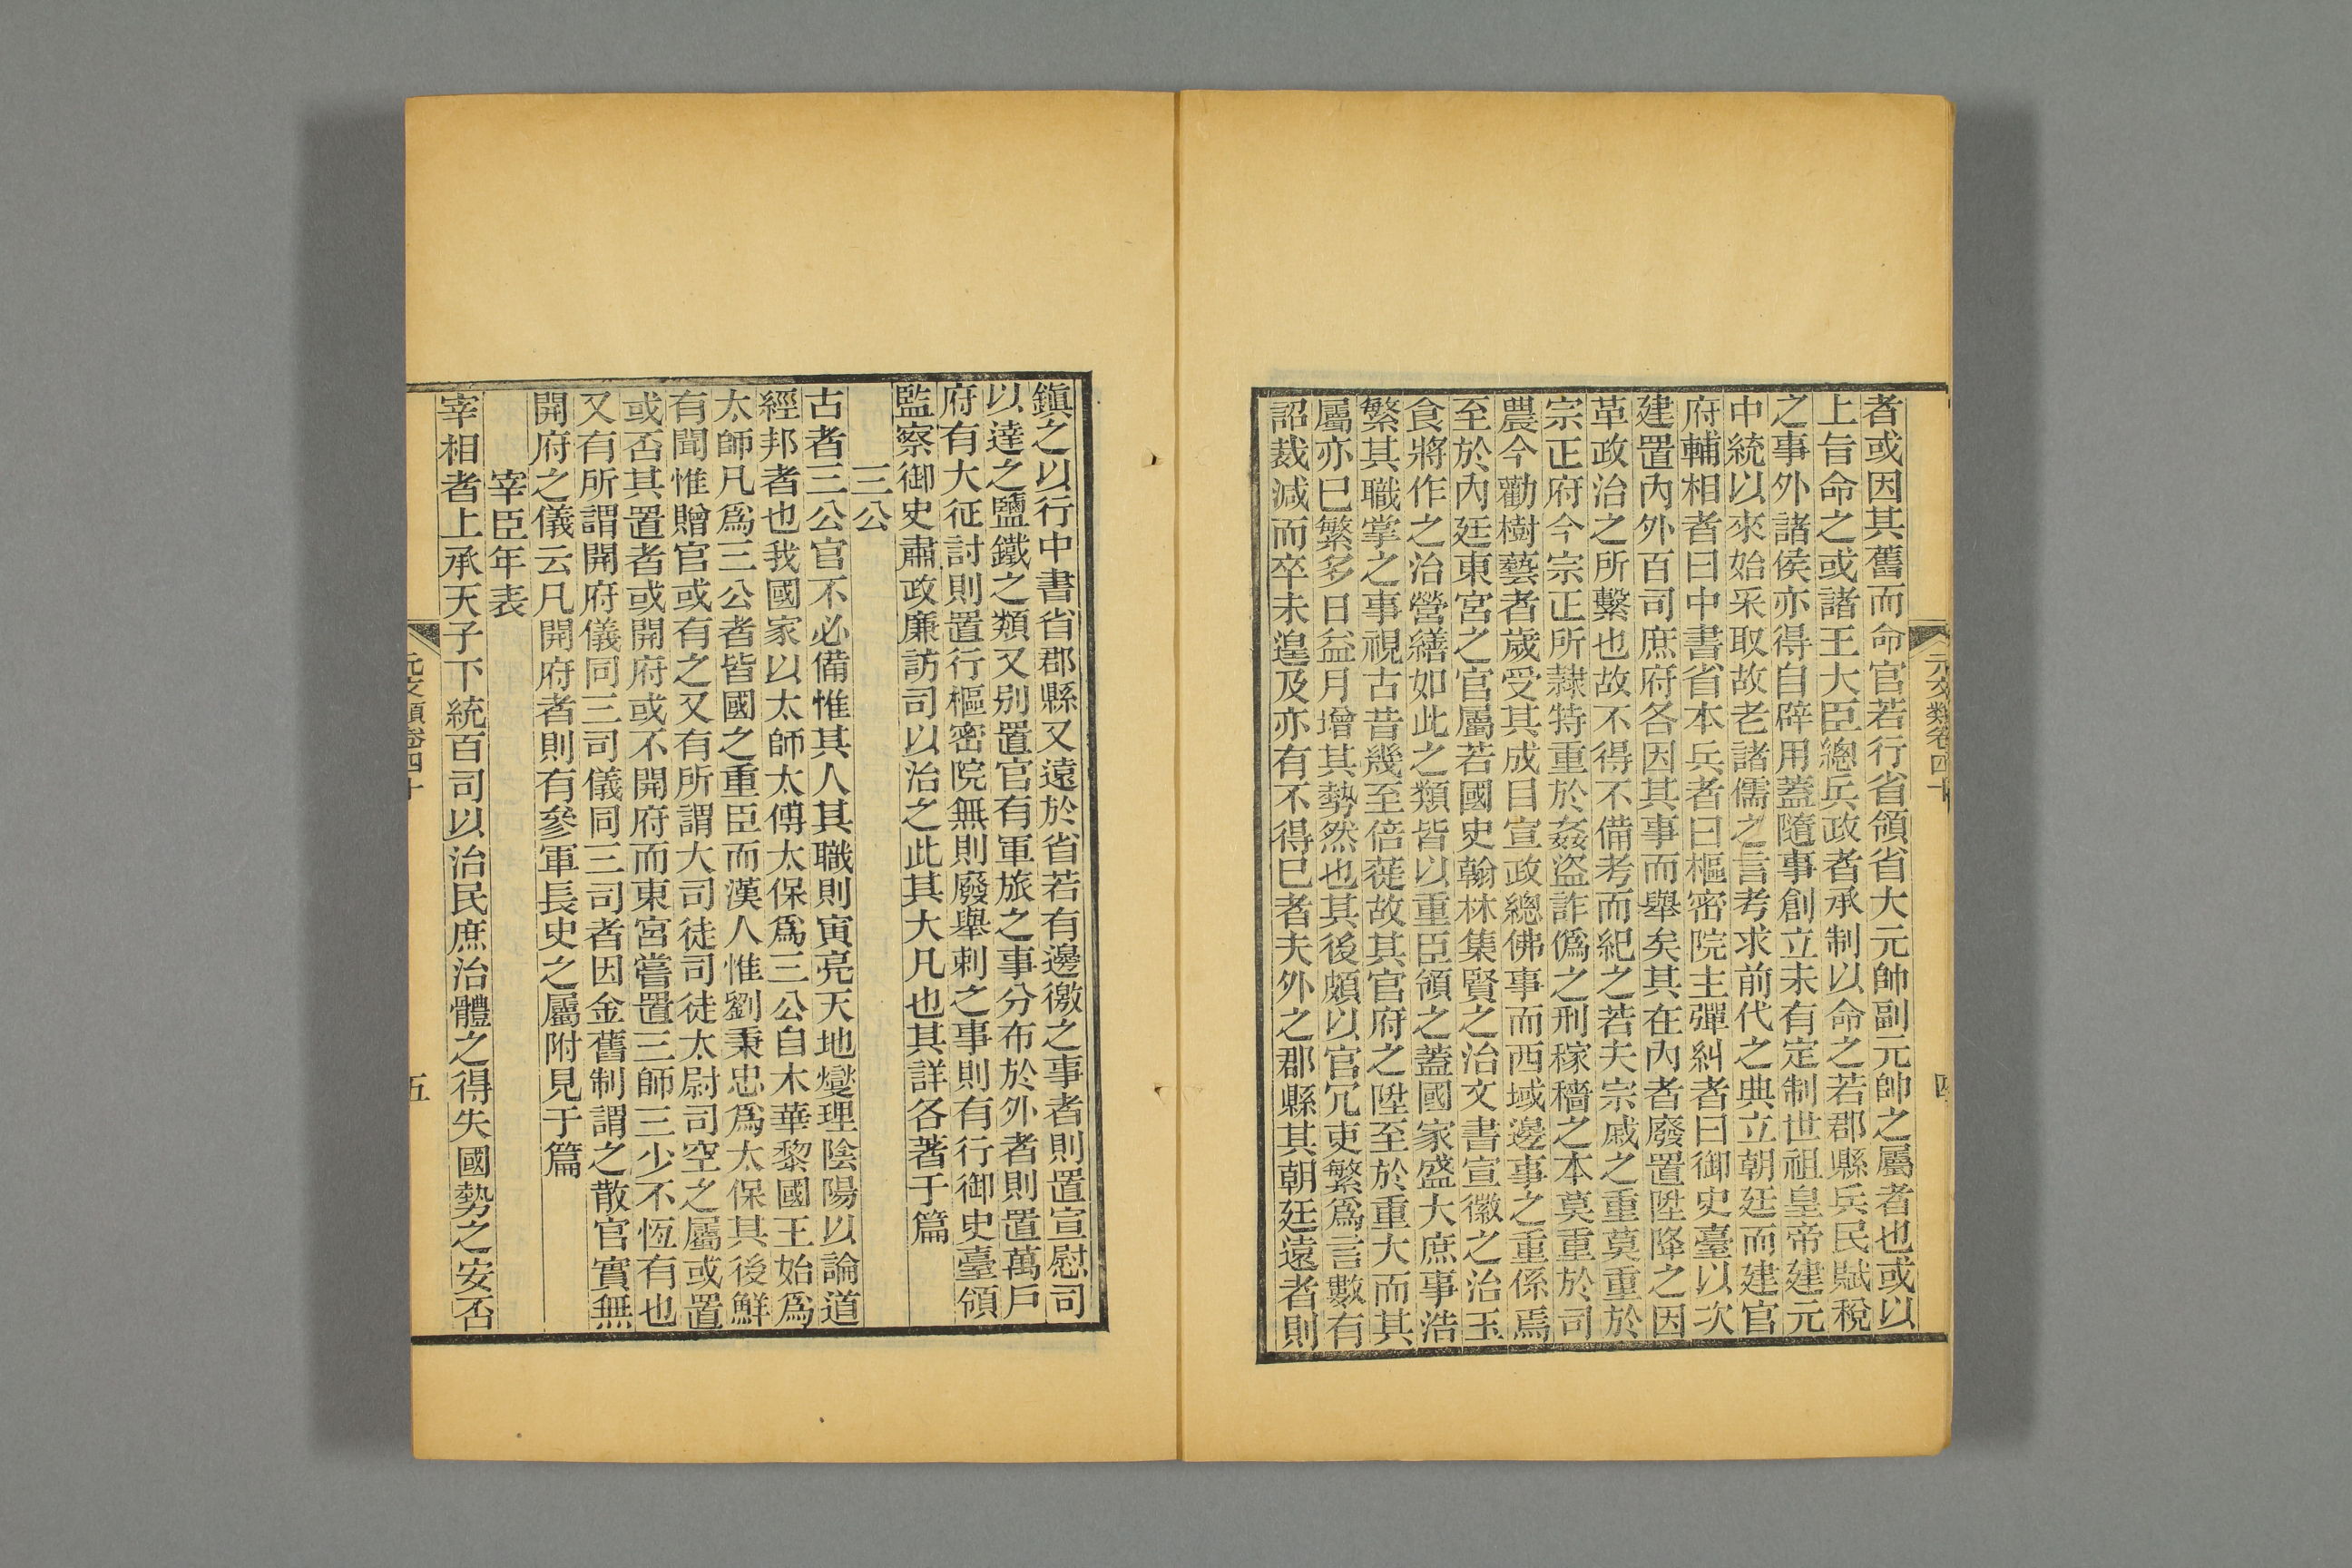 者或因其舊而命官若行省領省大元帥副元帥之屬者也或以
上旨命之或諸王大臣總兵政者承制以命之若郡縣兵民賦稅
之事外諸侯亦得自辟用蓋隨事創立未有定制世祖皇帝建元
中統以來始采取故老諸儒之言考求前代之典立朝廷而建官
府輔相者曰中書省本兵者曰樞密院主彈糾者曰御史臺以次
建置內外百司庶府各因其事而舉矣其在內者廢置陞降之因
革政治之所繫也故不得不備考而紀之若夫宗戚之重莫重於
宗正府今宗正所隷特重於姦盜詐僞之刑稼穡之本莫重於司
農今勸樹藝者歲受其成目宣政總佛事而西域邊事之重係焉
至於內廷東宮之官屬若國史翰林集賢之治文書宣徽之治玉
食將作之治營繕如此之類皆以重臣領之蓋國家盛大庶事浩
繁其職掌之事視古昔幾至倍蓰故其官府之陞至於重大而其
屬亦巳繁多日益月增其勢然也其後頗以官冗吏繁爲言數有
詔裁減而卒未遑及亦有不得巳者夫外之郡縣其朝廷遠者則
元文類卷四十
四
鎭之以行中書省郡縣又遠於省若有邊徼之事者則置宣慰司
以達之鹽鐵之類又別置官有軍旅之事分布於外者則置萬戶
府有大征討則置行樞密院無則廢舉刺之事則有行御史臺領
監察御史肅政廉訪司以治之此其大凡也其詳各著于篇
三公
古者三公官不必備惟其人其職則寅亮天地燮理陰陽以論道
經邦者也我國家以太師太傅太保爲三公自木華黎國王始爲
太師凡爲三公者皆國之重臣而漢人惟劉秉忠爲太保其後鮮
有聞惟贈官或有之又有所謂大司徒司徒太尉司空之屬或置
或否其置者或開府或不開府而東宮嘗置三師三少不恆有也
又有所謂開府儀同三司儀同三司者因金舊制謂之散官實無
開府之儀云凡開府者則有參軍長史之屬附見于篇
宰臣年表
宰相者上承天子下統百司以治民庶治體之得失國勢之安否
元文類卷四十
五